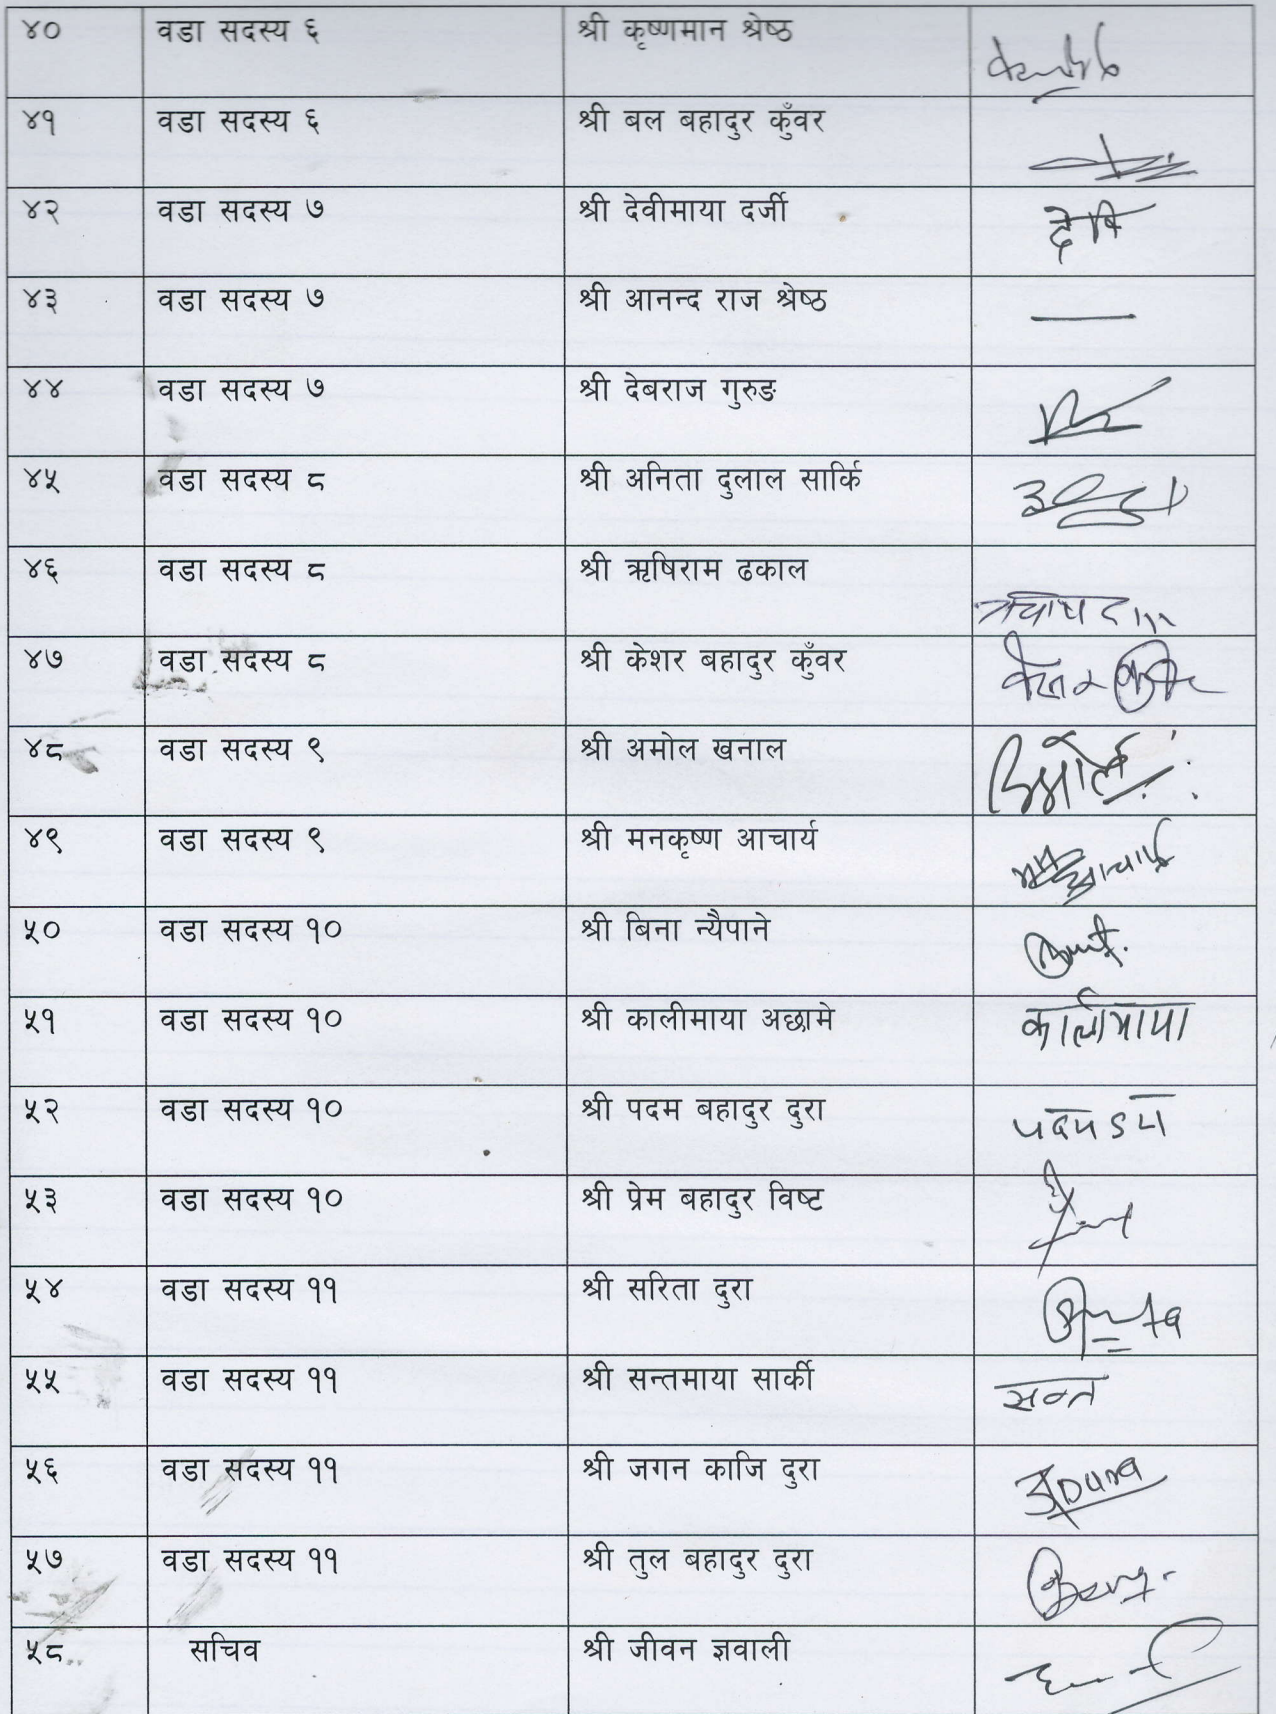 ४० वडा सदस्य ६ श्री कृष्णमान श्रेष्ठ
४१ वडा सदस्य ६ श्री बल बहादुर कुँवर
४२ वडा सदस्य ७ श्री देवीमाया दर्जी देवि
४३ वडा सदस्य ७ श्री आनन्द राज श्रेष्ठ —
४४ वडा सदस्य ७ श्री देबराज गुरुङ
४५ वडा सदस्य ८ श्री अनिता दुलाल सार्कि
४६ वडा सदस्य ८ श्री ऋषिराम ढकाल
४७ वडा सदस्य ८ श्री केशर बहादुर कुँवर
४८ वडा सदस्य ९ श्री अमोल खनाल
४९ वडा सदस्य ९ श्री मनकृष्ण आचार्य
५० वडा सदस्य १० श्री बिना न्यैपाने
५१ वडा सदस्य १० श्री कालीमाया अछामे कालीमाया
५२ वडा सदस्य १० श्री पदम बहादुर दुरा
५३ वडा सदस्य १० श्री प्रेम बहादुर विष्ट
५४ वडा सदस्य ११ श्री सरिता दुरा
५५ वडा सदस्य ११ श्री सन्तमाया सार्की सन्त
५६ वडा सदस्य ११ श्री जगन काजि दुरा
५७ वडा सदस्य ११ श्री तुल बहादुर दुरा
५८ सचिव श्री जीवन ज्ञवाली